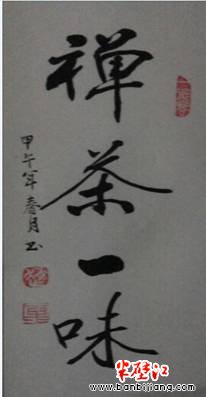 禅茶一味
甲午年春月书
半壁江
www.banbijiang.com